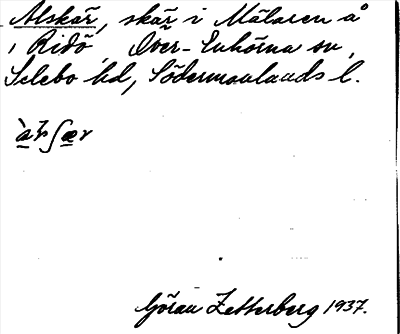 Alskär, skär i Mälaren å
i Ridö, Över-Enhörna sn,
Selebo hd, Södermanlands l.
Göran Zetterberg 1937.